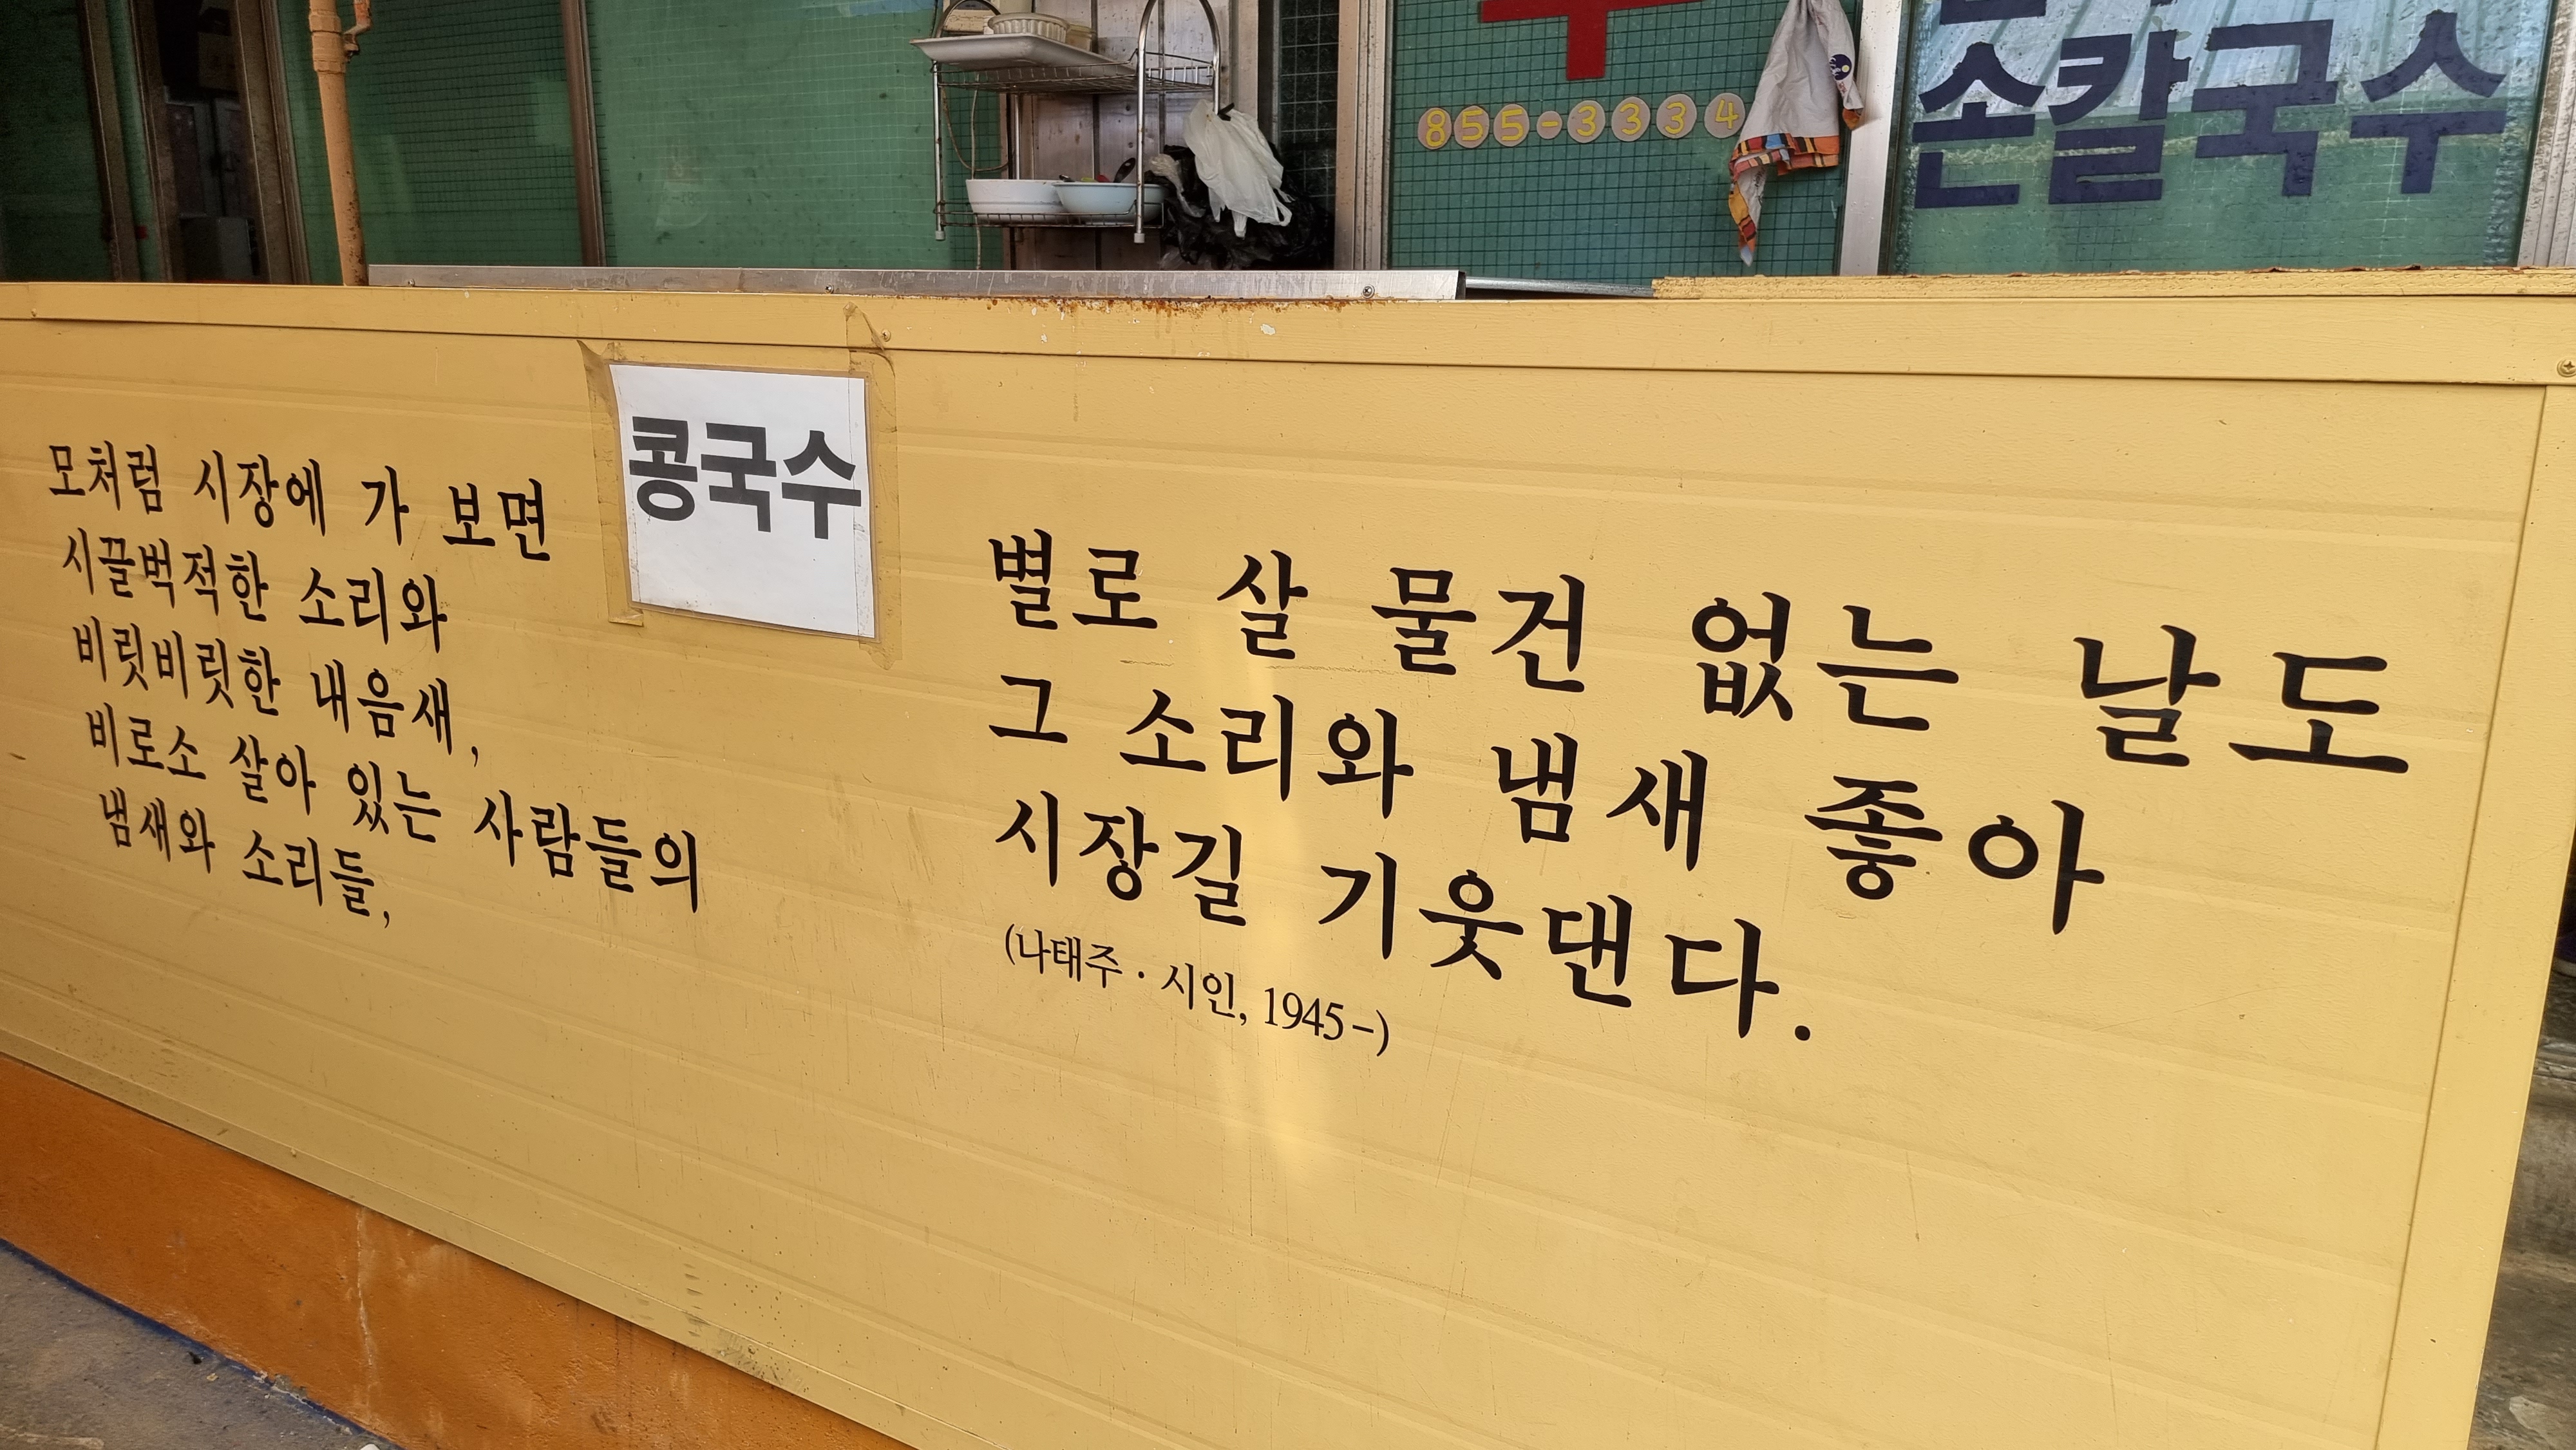 855-3334
손칼국수
콩국수
모처럼 시장에 가 보면
시끌벅적한 소리와
비릿비릿한 내음새,
비로소 살아 있는 사람들의
냄새와 소리들,
별로 살 물건 없는 날도
그 소리와 냄새 좋아
시장길 기웃댄다.
(나태주 · 시인, 1945-)